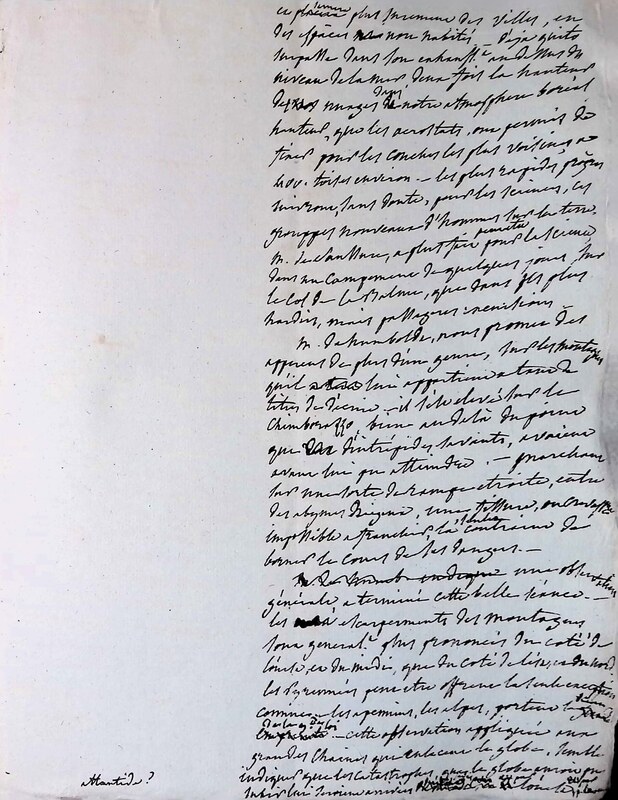 plus immense des villes, en
des espaces non habités — déja quito
surpasse dans son enhaussé. au dessus du
niveau de la mer deux fois la hauteur
des nuages dans notre atmosphere boreal
hauteur, que les aerostats, ont permis de
fixer pour les couches les plus voisines a
600. toises environ — les plus rapides progrès
suivront, sans doute, pour les sciences, ces
grouppes nouveaux d'hommes sur la terre.
m. de Saussure, a plus fait ensuite pour la science
dans un campement de quelques jours, sur
le Col de la Balme, que dans ses plus
hardis, mais passagers
m. de humbolde, nous promet des
apperçus de plus d'un genre, sur les montagnes
qu'il lui appartient a tant de
titres de décrire — il s'est elevé sur le
Chimborazzo, bien au delà du point
que d'intrépides savants, avaient
avant lui pu atteindre. — marchant
sur une sorte de rampe etroite, entre
des abymes une fissure, ou crevasse
impossible a franchir, la contraint de
borner le cours de ses dangers. —
une observation
générale a terminé cette belle séance. —
les escarpements des montagnes
sont general.t plus prononcés du coté de
l'ouest, et du midi, que du coté de l'est, et du nord
les Pyrennées peut etre offrent la seule exception
connue — les apennins, les alpes, portent
de la loi
empreinte. — cette observation appliquée aux
grandes Chaines qui enlacent le globe, semble
indiquer que les catastrophes, que le globe auroit pu
subir lui seroient arrivées
atlantide ?